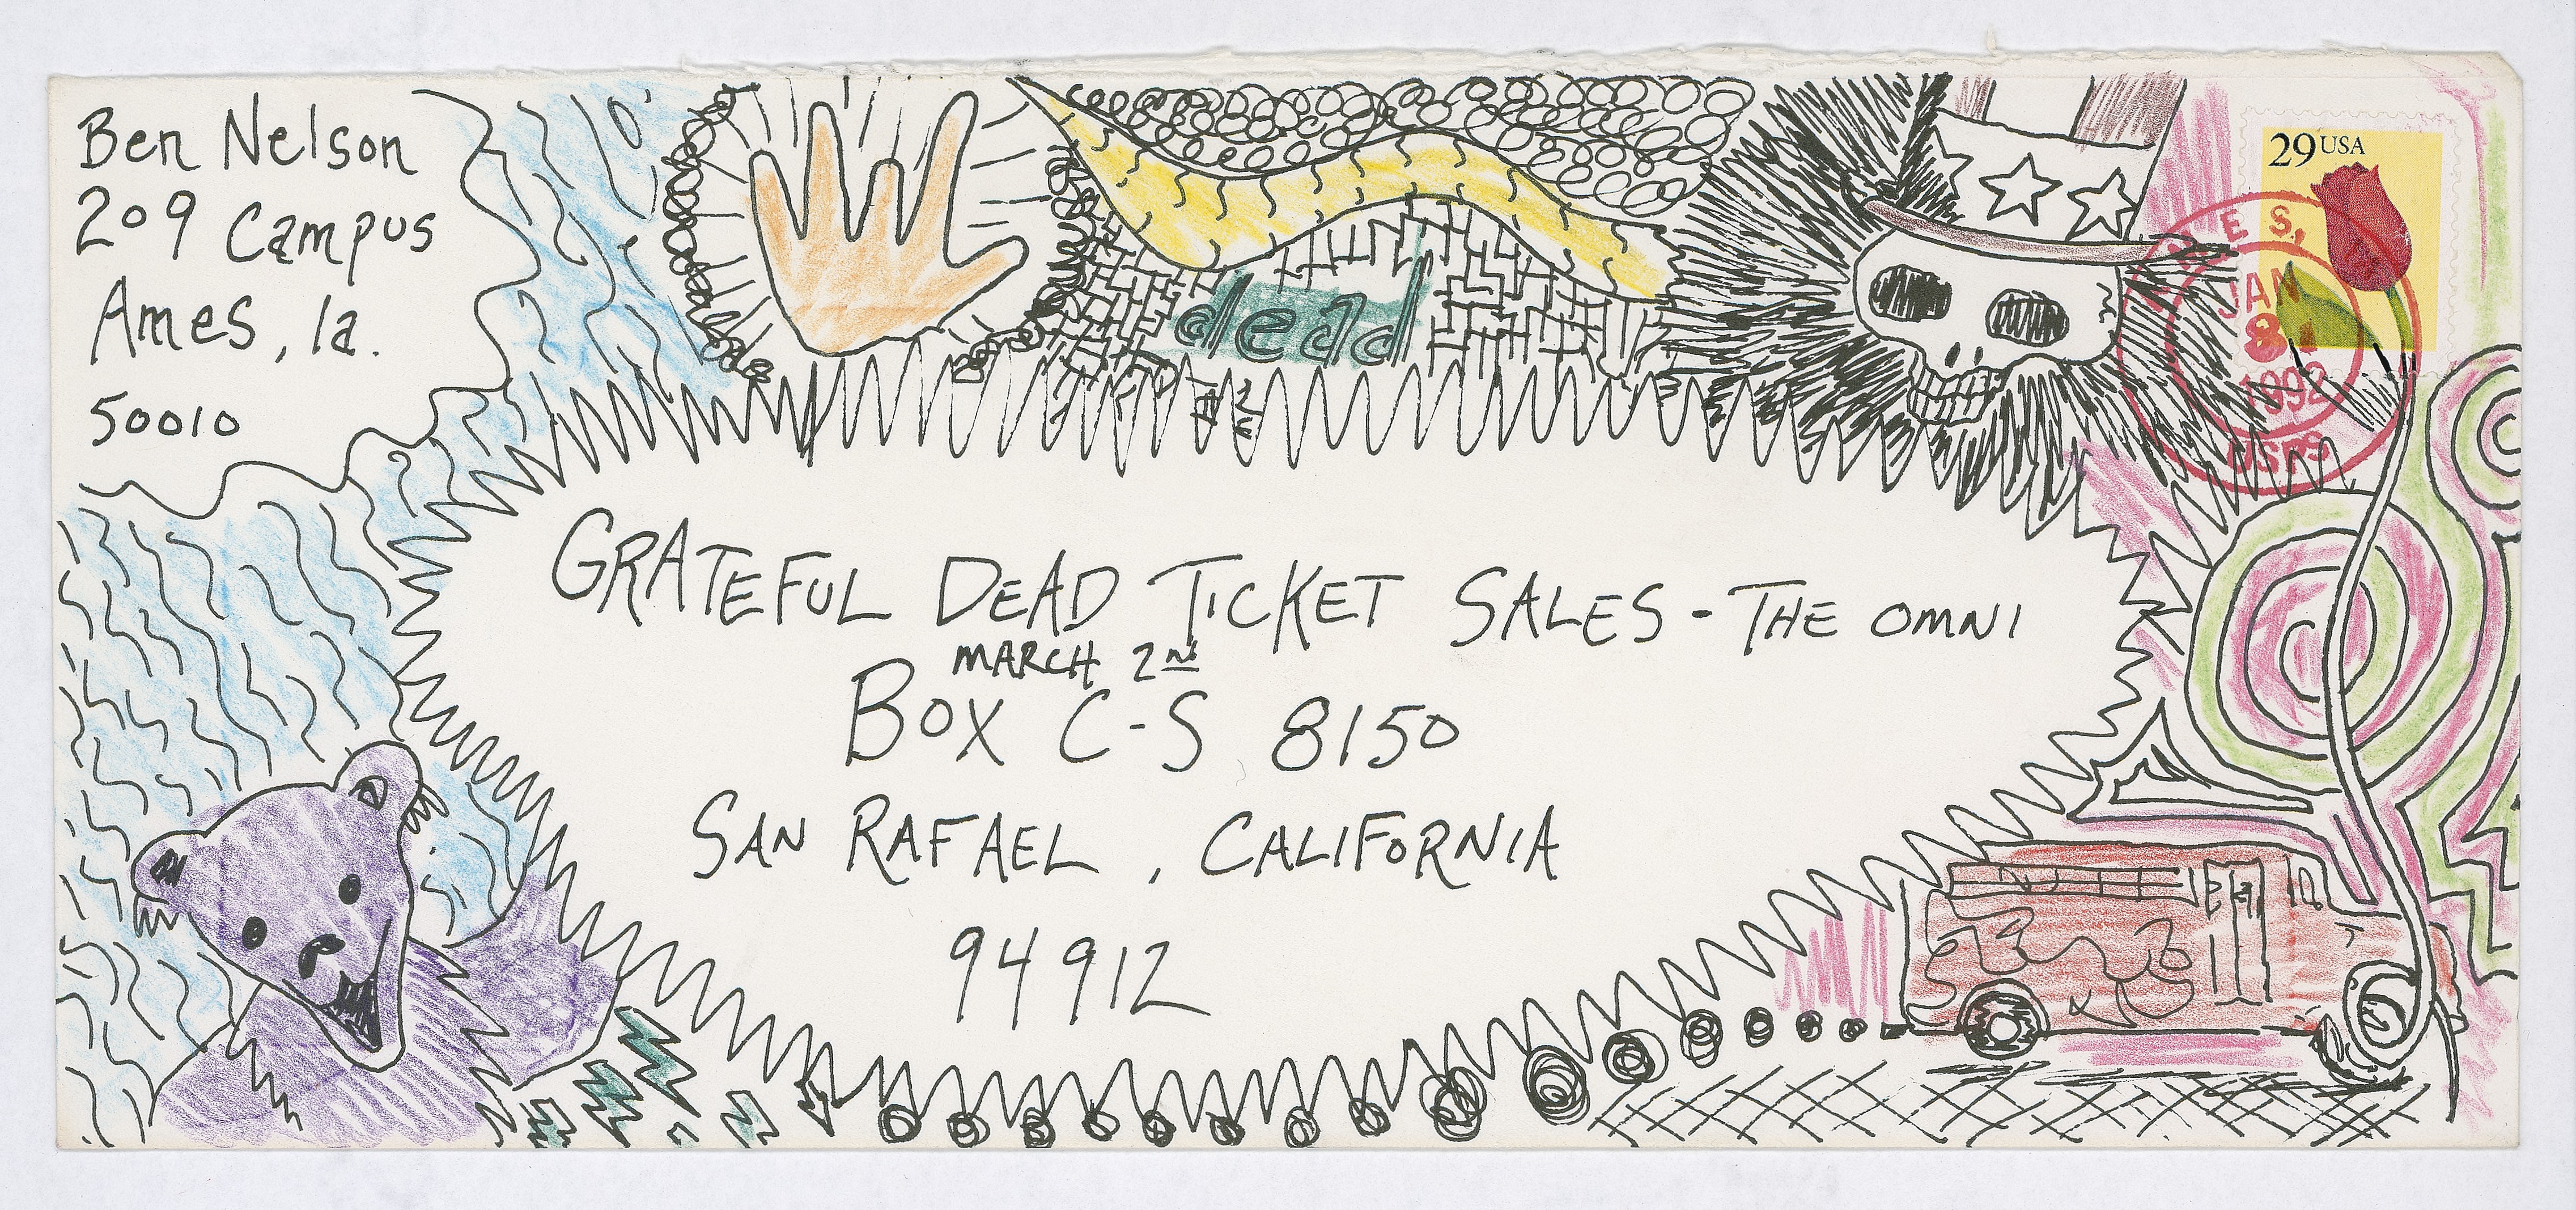 Ben Nelson
209 Campus
Ames, Ia.
50010
dead
29 USA
AMES,
JAN
8
1992
USPS
GRATEFUL DEAD TICKET SALES - THE OMNI
MARCH 2nd
BOX C-S 8150
SAN RAFAEL, CALIFORNIA
94912